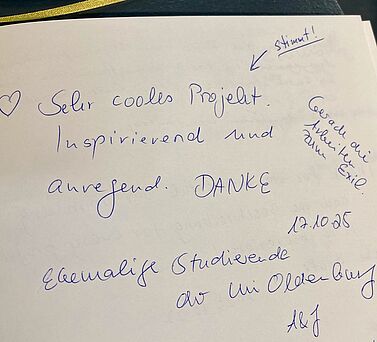 stimmt!
♡ Sehr cooles Projekt.
Inspirierend und
anregend. DANKE
Gerade die
Arbeiten
zum Exil.
17.10.25
Ehemalige Studierende
der Uni Oldenburg
A&J